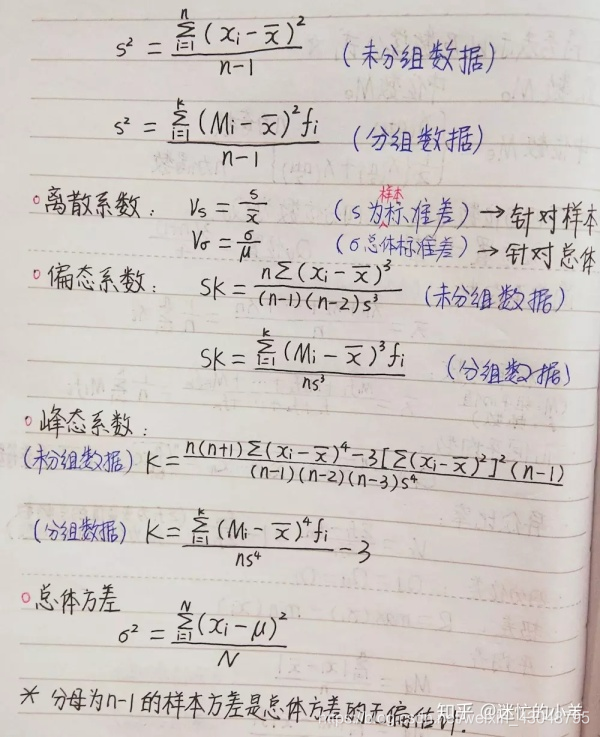 s² = \frac{\sum_{i=1}^{n}(x_i-\overline{x})^2}{n-1} (未分组数据)
s² = \frac{\sum_{i=1}^{k}(M_i-\overline{x})^2 f_i}{n-1} (分组数据)
离散系数: V_s = \frac{s}{\overline{x}} (s为样本标准差) → 针对样本
V_σ = \frac{σ}{μ} (σ总体标准差) → 针对总体
偏态系数: SK = \frac{n\sum(x_i-\overline{x})^3}{(n-1)(n-2)s^3} (未分组数据)
SK = \frac{\sum_{i=1}^{k}(M_i-\overline{x})^3 f_i}{ns^3} (分组数据)
峰态系数:
(未分组数据) K = \frac{n(n+1)\sum(x_i-\overline{x})^4-3[\sum(x_i-\overline{x})^2]^2(n-1)}{(n-1)(n-2)(n-3)s^4}
(分组数据) K = \frac{\sum_{i=1}^{k}(M_i-\overline{x})^4 f_i}{ns^4} - 3
总体方差
σ² = \frac{\sum_{i=1}^{N}(x_i-μ)^2}{N}
* 分母为n-1的样本方差是总体方差的无偏估计.
知乎 @迷茫的小羊